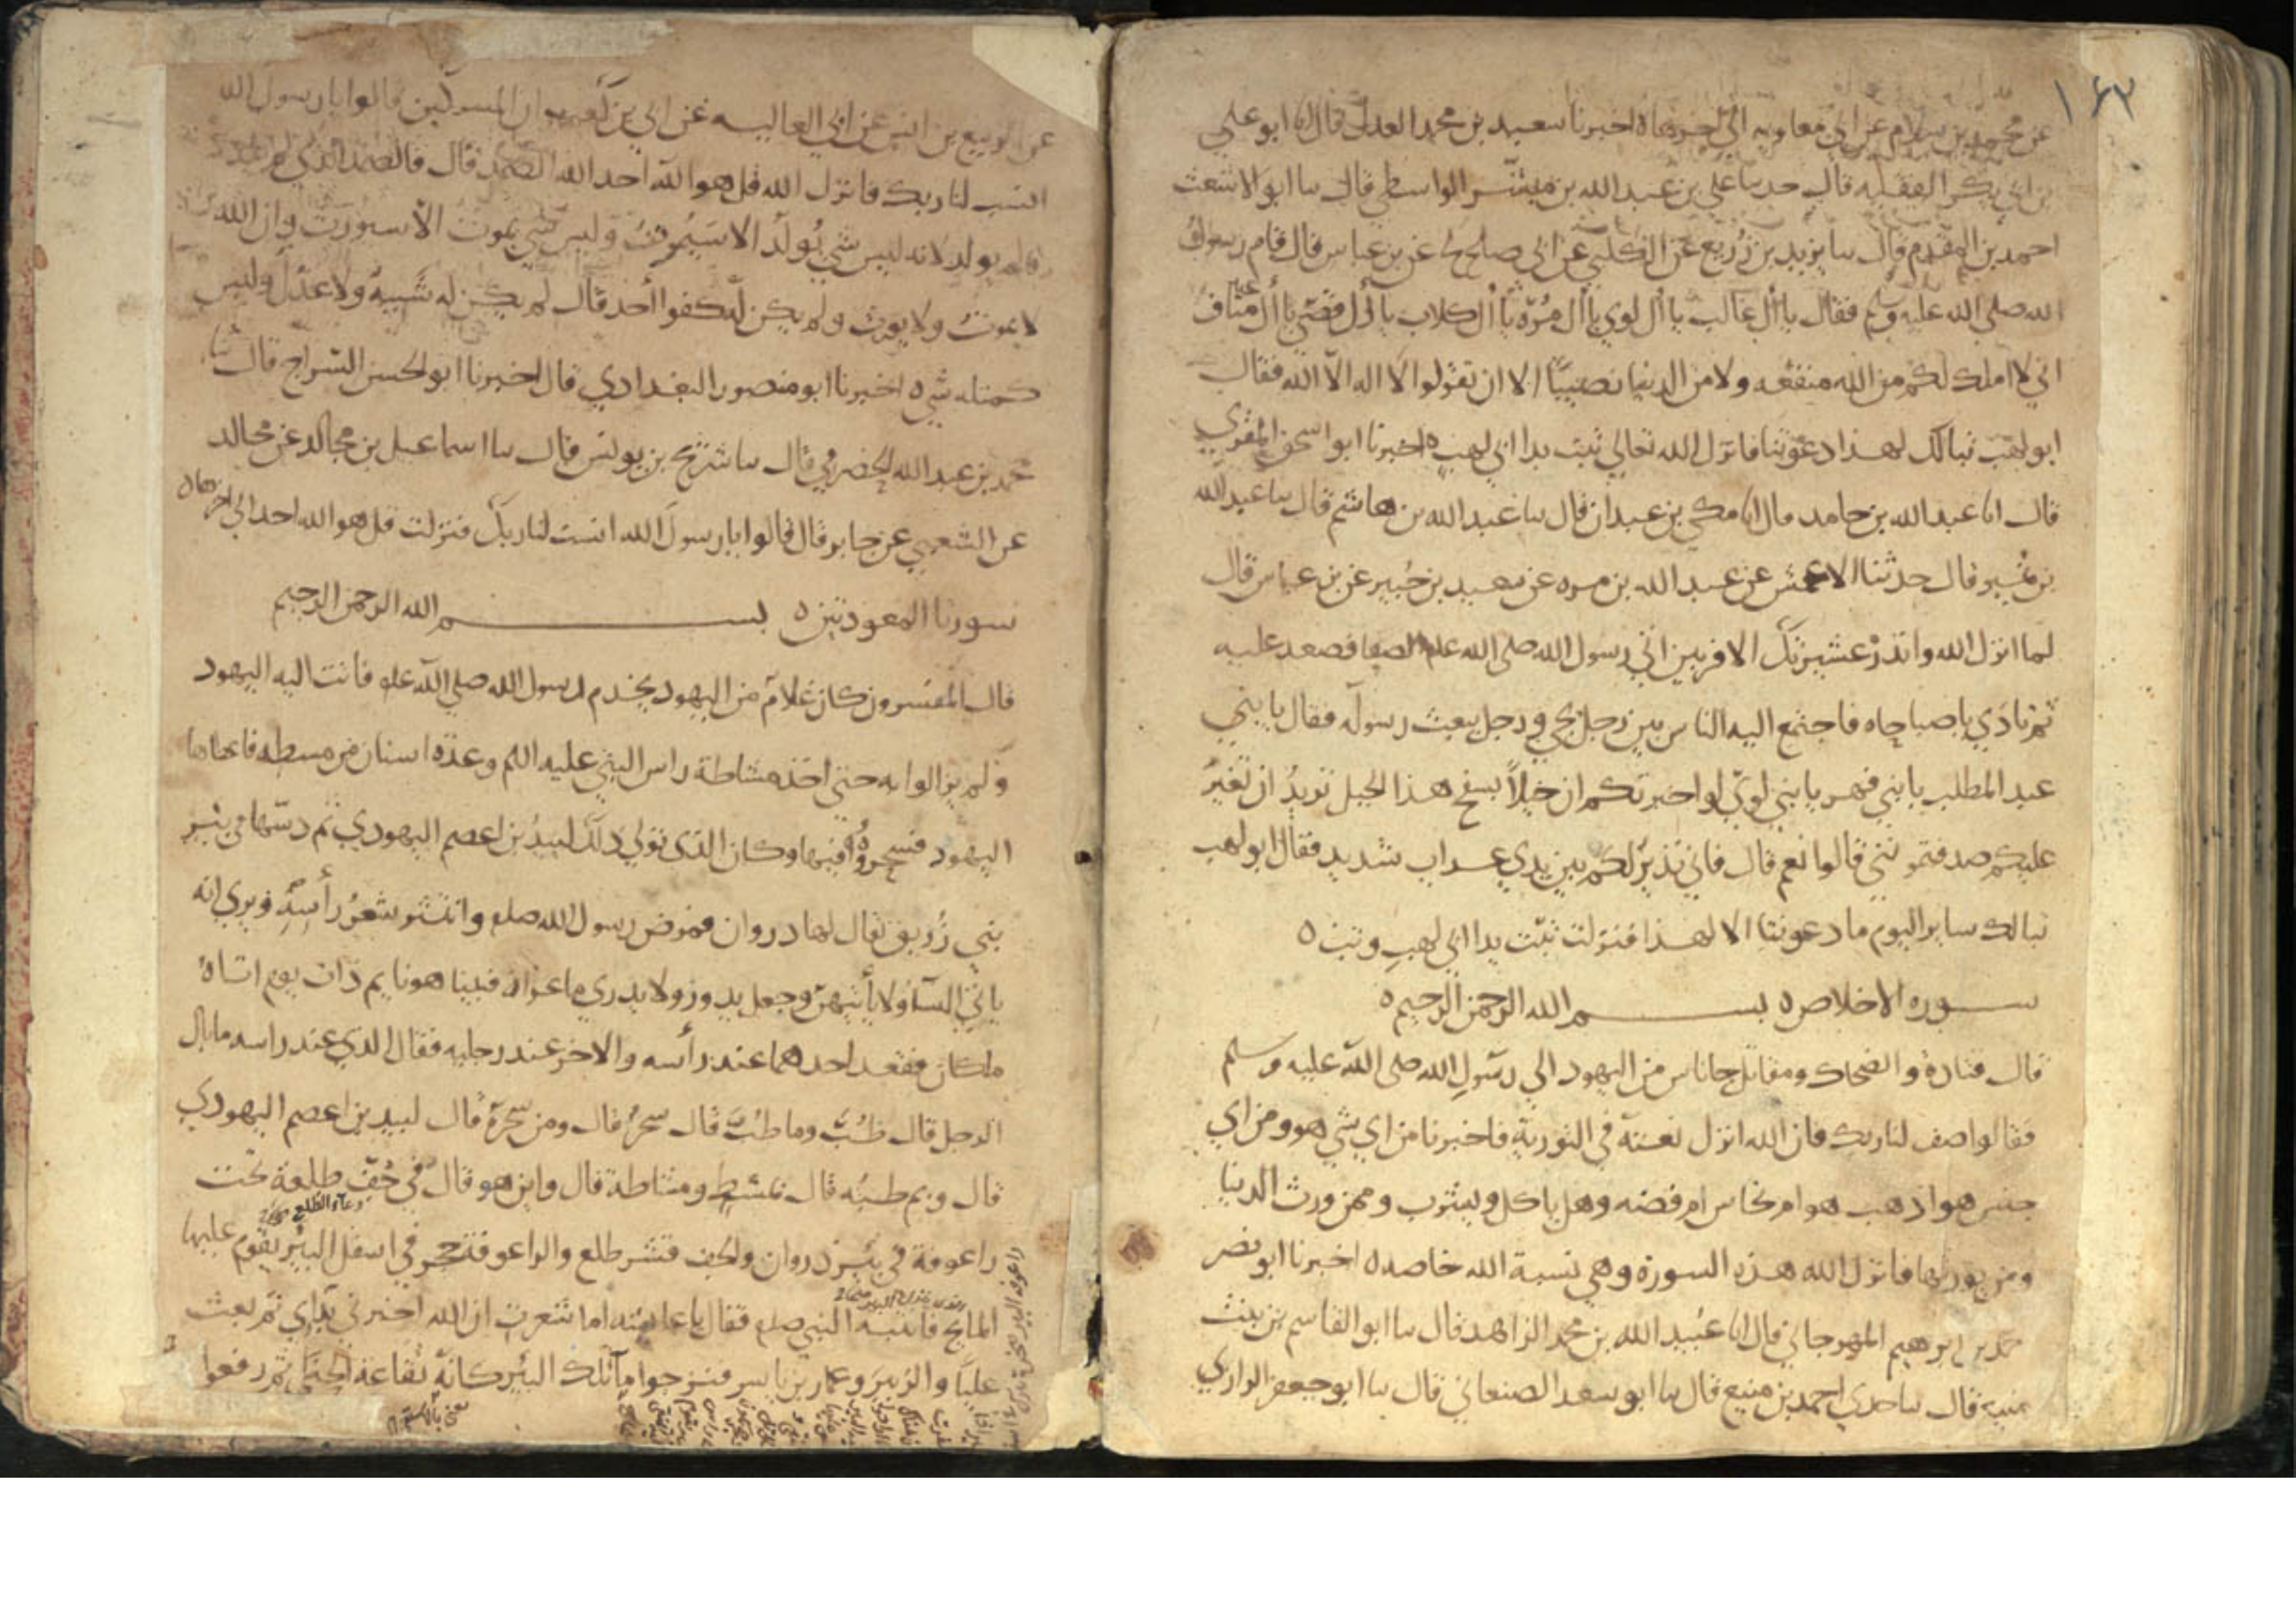 ١٦٣
عن محمد بن سلام عن ابي معاويه الى اخرها ه اخبرنا سعيد بن محمد العدل قال انا ابو علي
بن ابي بكر الفقيه قال حدثنا علي بن عبد الله بن مبشر الواسطي قال سا ابو الاشعث
احمد بن المقدم قال سا يزيد بن زريع عن الكلبي عن ابي صلح عن بن عباس قال قام رسول
الله صلى الله عليه وسلم فقال يا أل غالب يا أل لوي يا أل مُرّة يا أل كلاب يا أل قصّي يا أل عبد مناف
اني لا املك لكم من الله منفعه ولا من الدنيا نصيبًا الا ان تقولوا لا اله الا الله فقال
ابو لهب تبا لك لهذا دعوتنا فانزل الله تعالي تبت يدا ابي لهب ه اخبرنا ابو اسحق المقري
قال انا عبد الله بن حامد قال انا مكي بن عبدان قال سا عبد الله بن هاشم قال سا عبد الله
بن نمير قال حدثنا الاعمش عن عبد الله بن مره عن سعيد بن جُبير عن بن عباس قال
لما انزل الله وانذر عشيرتك الاقربين اتي رسول الله صلى الله علم الصفا فصعد عليه
ثم نادي يا صباحاه فاجتمع اليه الناس بين رجل يجي ورجل يبعث رسوله فقال يا بني
عبد المطلب يا بني فهر يا بني لوي لو اخبرتكم ان خيلًا بسفح هذا الجبل تريدُ ان تغيرُ
عليكم صدقتموني قالوا نعم قال فاني نذير لكم بين يدي عداب شديد فقال ابو لهب
تبا لك ساير اليوم ما دعوتنا الا لهذا فنزلت تبّت يدا ابي لهبٍ وتب ه
سوره الاخلاص ه بسم الله الرحمن الرحيم ه
قال قتادة والضحاك ومقاتل جا ناس من اليهود الي رسول الله صلى الله عليه وسلم
فقالوا صف لنا ربك فان الله انزل نعته في التورية فاخبرنا من اي شي هو ومن اي
جنس هو اذهب هو ام نحاس ام فضه وهل ياكل ويشرب وممن ورث الدنيا
ومن يورثها فانزل الله هذه السورة وهي نسبة الله خاصه ه اخبرنا ابو نصر
احمد بن ابرهيم المهرجاني قال انا عُبيد الله بن محمد الزاهد قال سا ابو القاسم بن بنت
منيع قال سا جدي احمد بن منيع قال سا ابو سعد الصنعاني قال سا ابو جعفر الرازي
عن الربيع بن انس عن ابي العاليه عن ابي بن كعب ان المشركين قالوا يا رسول الله
انسب لنا ربك فانزل الله قل هو الله احد الله الصمد قال فالصمد الذي لم يلد
ولم يولد لانه ليس شي يُولد الا سيموتُ وليس شي يموت الا سيورث وان الله
لا يموتُ ولا يورث ولم يكن له كفوا أحد قال لم يكن له شبيه ولا عدل وليس
كمثله شي ه اخبرنا ابو منصور البغدادي قال اخبرنا ابو الحسن السراج قال ثنا
محمد بن عبد الله الحضرمي قال سا شريح بن يونس قال سا اسماعيل بن مجالد عن مجالد
عن الشعبي عن جابر قال قالوا يا رسول الله انسب لنا ربك فنزلت قل هو الله احد الي اخرها ه
سورتا المعوذتين ه بسم الله الرحمن الرحيم
قال المفسرون كان غلام من اليهود يخدم رسول الله صلي الله عله فاتت اليه اليهود
ولم يزالوا به حتي اخذ مشاطة راس النبي عليه السلم وعدّه اسنان من مسطه فاعطاها
اليهود فسحروُه فيها وكان الذي تولي ذلك لبيدُ بن اعصم اليهودي ثم دسّها في بئر
بني زُريق يقال لها دروان فمرض رسول الله صلم وانتشر شعرُ رأسه ويري انه
ياتي النسآ ولا يأتيهن وجعل يدور ولا يدري ما عراه فبينا هو نايم ذات يوم اتاهُ
ملكان فقعد احدهما عند رأسه والاخر عند رجليه فقال الذي عند راسه ما بال
الرجل قال طُبّ وما طُبّ قال سحرُ قال ومن سحرَهُ قال لبيد بن اعصم اليهودي
قال وبم طبّه قال بمُشط ومشاطة قال واين هو قال في جُفّ طلعة تحت
وعآ الطلع
راعوفة في بئر ذروان والجف قشر طلع والراعوفة حجر في اسفل البئر يقوم عليها
المايح فانتبه النبي صلم فقال يا عايشه اما شعرت ان الله اخبرني بدآي ثم بعث
عليًا والزبير وعمار بن ياسر فنزحوا مآ تلك البئر كانّه نُقاعة الحنّا ثم رفعوا